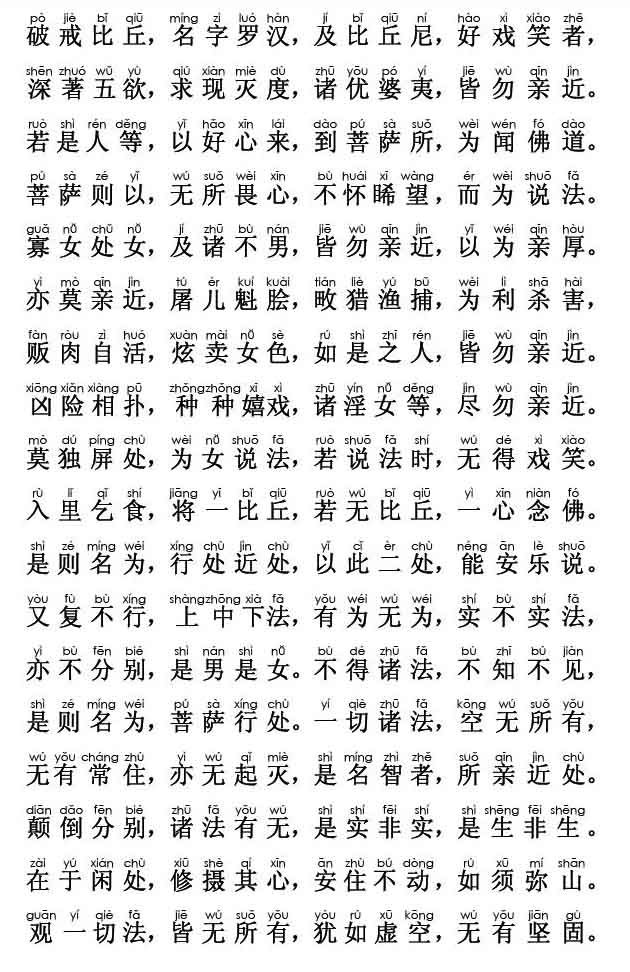 pò jiè bǐ qiū míng zì luó hàn jí bǐ qiū ní hào xì xiào zhě
破戒比丘，名字罗汉，及比丘尼，好戏笑者，
shēn zhuó wǔ yù qiú xiàn miè dù zhū yōu pó yí jiē wù qīn jìn
深著五欲，求现灭度，诸优婆夷，皆勿亲近。
ruò shì rén děng yǐ hǎo xīn lái dào pú sà suǒ wèi wén fó dào
若是人等，以好心来，到菩萨所，为闻佛道。
pú sà zé yǐ wú suǒ wèi xīn bù huái xī wàng ér wèi shuō fǎ
菩萨则以，无所畏心，不怀睎望，而为说法。
guǎ nǚ chǔ nǚ jí zhū bù nán jiē wù qīn jìn yǐ wéi qīn hòu
寡女处女，及诸不男，皆勿亲近，以为亲厚。
yì mò qīn jìn tú ér kuí kuài tián liè yú bǔ wèi lì shā hài
亦莫亲近，屠儿魁脍，畋猎渔捕，为利杀害，
fàn ròu zì huó xuàn mài nǚ sè rú shì zhī rén jiē wù qīn jìn
贩肉自活，炫卖女色，如是之人，皆勿亲近。
xiōng xiǎn xiàng pū zhǒng zhǒng xī xì zhū yín nǚ děng jìn wù qīn jìn
凶险相扑，种种嬉戏，诸淫女等，尽勿亲近。
mò dú píng chù wèi nǚ shuō fǎ ruò shuō fǎ shí wú dé xì xiào
莫独屏处，为女说法，若说法时，无得戏笑。
rù lǐ qǐ shí jiāng yī bǐ qiū ruò wú bǐ qiū yì xīn niàn fó
入里乞食，将一比丘，若无比丘，一心念佛。
shì zé míng wéi xíng chù jìn chù yǐ cǐ èr chù néng ān lè shuō
是则名为，行处近处，以此二处，能安乐说。
yòu fù bù xíng shàng zhōng xià fǎ yǒu wéi wú wéi shí bù shí fǎ
又复不行，上中下法，有为无为，实不实法，
yì bù fēn bié shì nán shì nǚ bù dé zhū fǎ bù zhī bú jiàn
亦不分别，是男是女。不得诸法，不知不见，
shì zé míng wéi pú sà xíng chù yí qiè zhū fǎ kōng wú suǒ yǒu
是则名为，菩萨行处。一切诸法，空无所有，
wú yǒu cháng zhù yì wú qǐ miè shì míng zhì zhě suǒ qīn jìn chù
无有常住，亦无起灭，是名智者，所亲近处。
diān dǎo fēn bié zhū fǎ yǒu wú shì shí fēi shí shì shēng fēi shēng
颠倒分别，诸法有无，是实非实，是生非生。
zài yú xián chù xiū shè qí xīn ān zhù bú dòng rú xū mí shān
在于闲处，修摄其心，安住不动，如须弥山。
guān yí qiè fǎ jiē wú suǒ yǒu yóu rú xū kōng wú yǒu jiān gù
观一切法，皆无所有，犹如虚空，无有坚固。